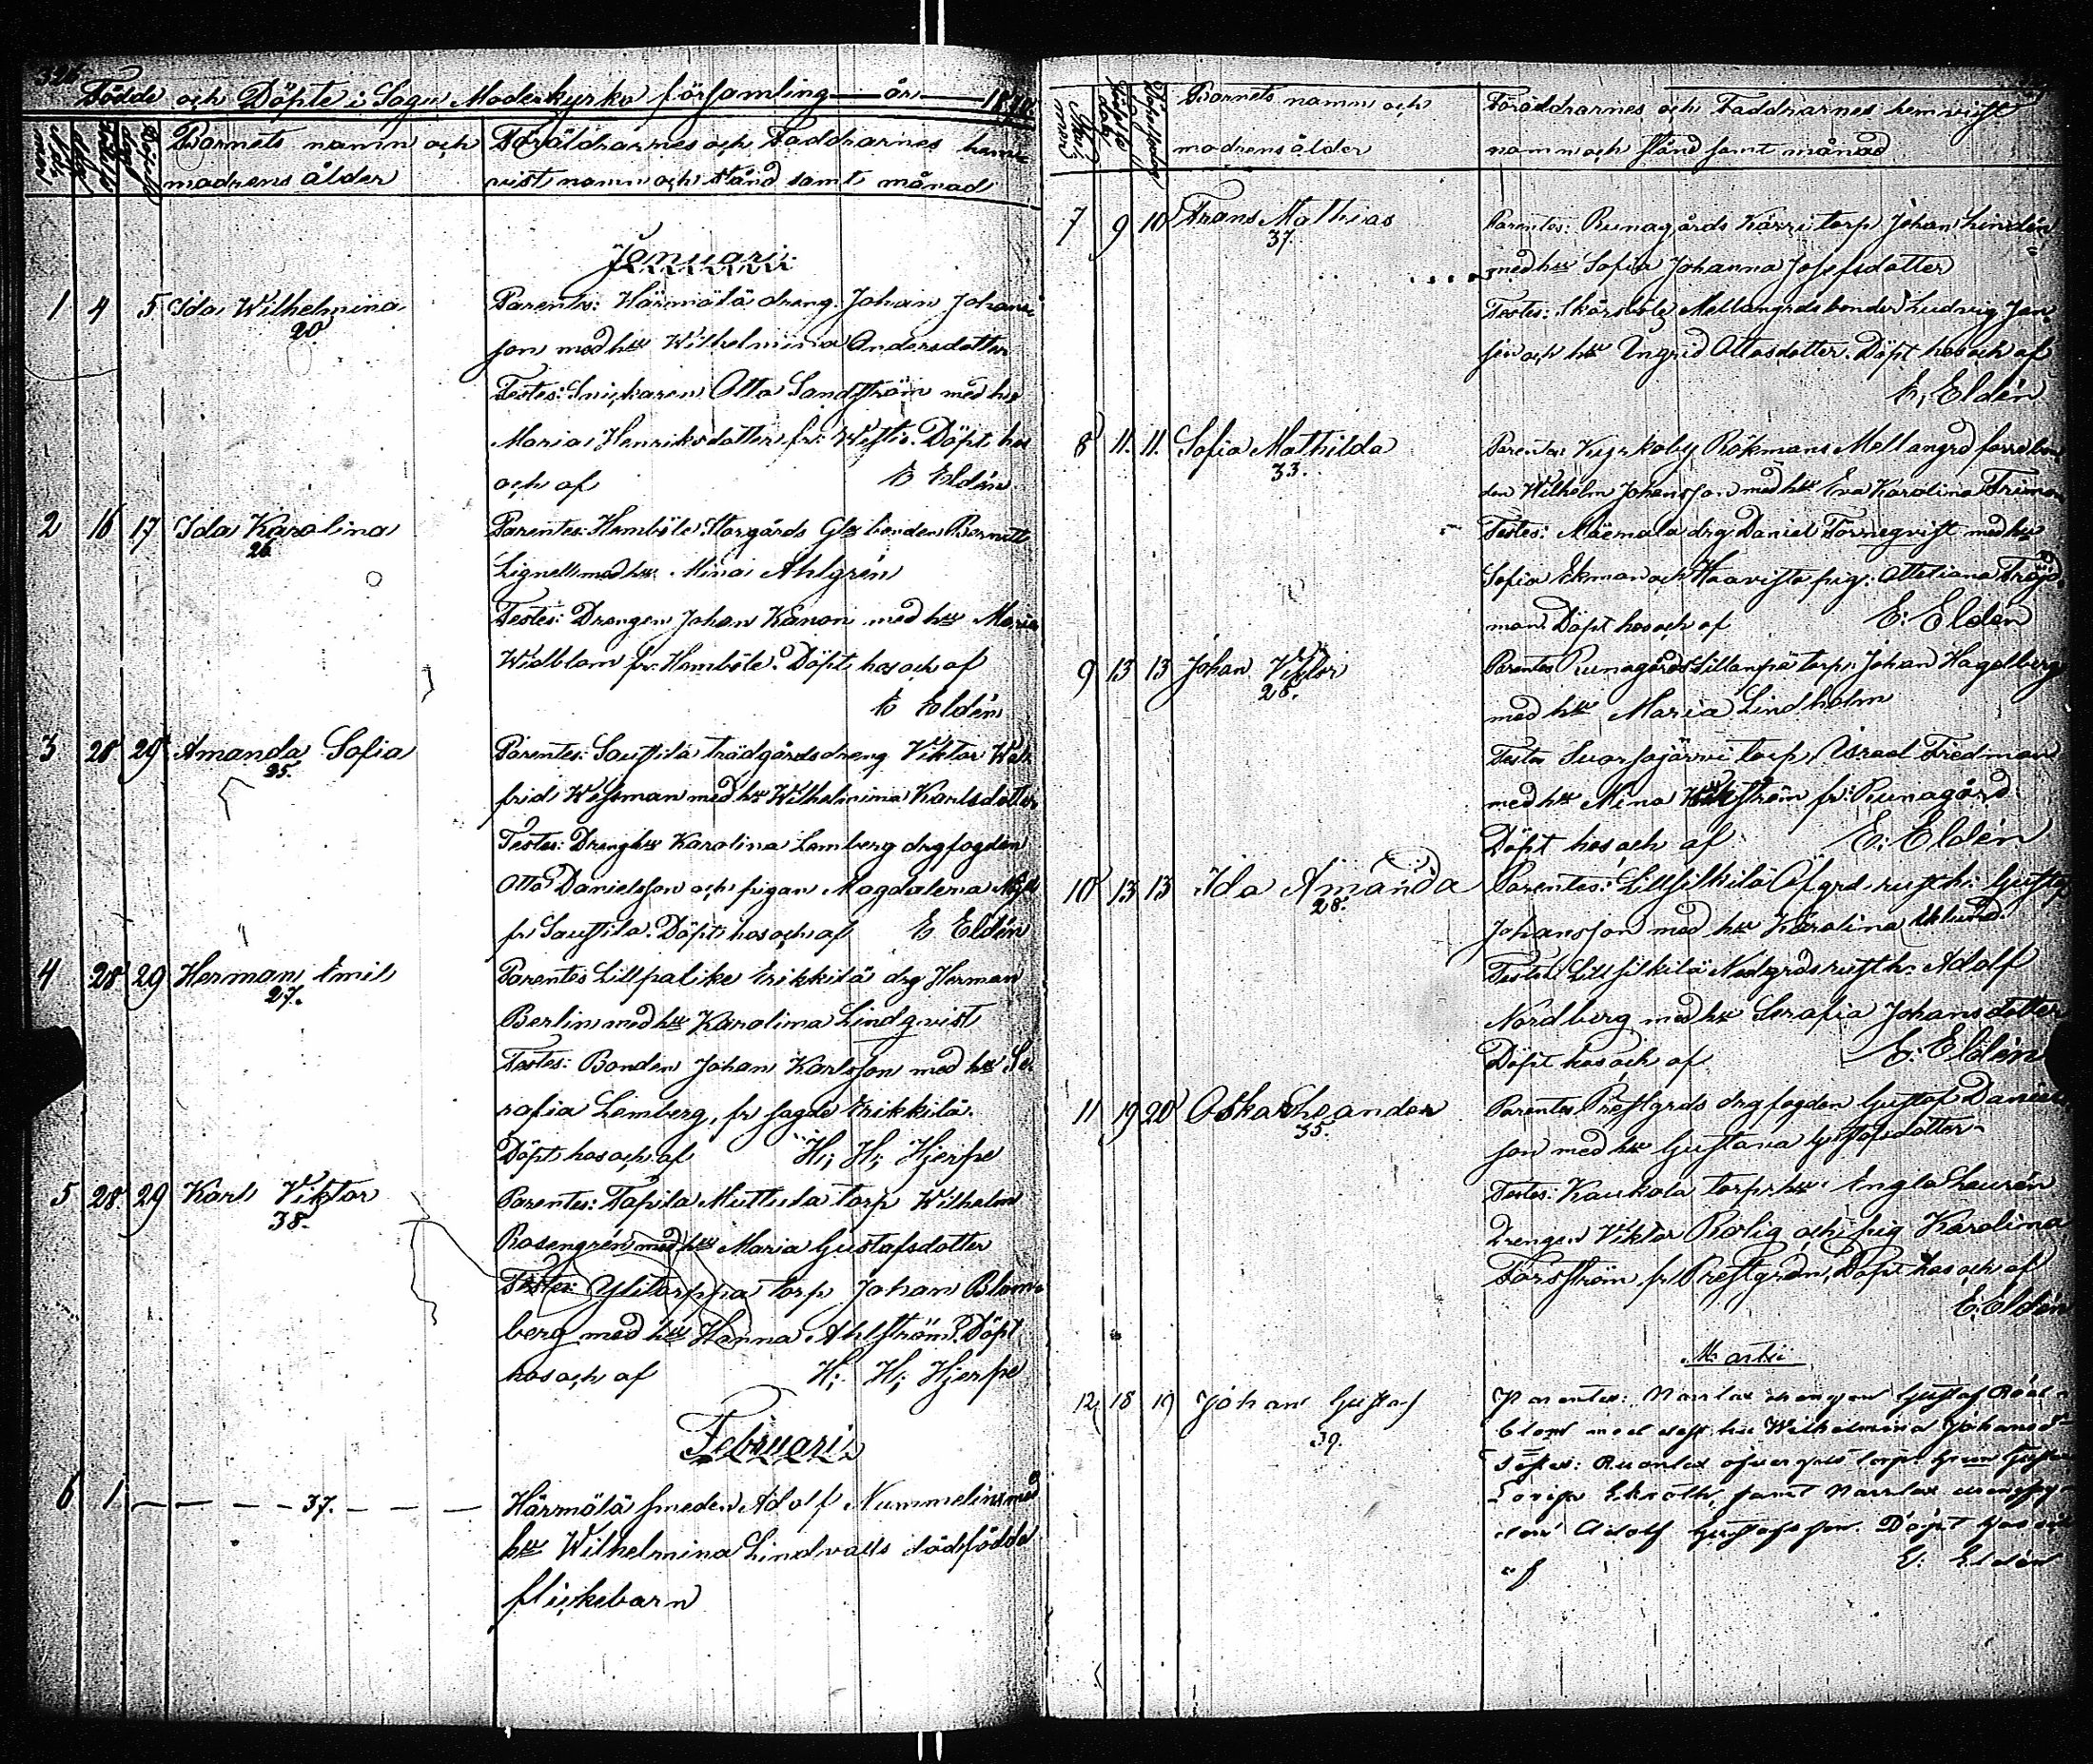 Födde och Döpte i Sagu Moderkyrko församling år
Barnets namn och
modrens ålder
Föräldrarnes och Faddrarnes hem-
vist namn och stånd samt månad
Januari
1 4 5 Ida Wilhelmina
20.
Parentes: Härmälä dräng Johan Johans-
son med hu Wilhelmina Andersdotter
Testes: Snickaren Otto Sandström med hu
Maria Henriksdotter fr: Döpt hos
och af E Eldén
2 16 17 Ida Karolina
26
Parentes: Hemböle Storgårds bonden
Lignell med hu Mina Ahlgrén
Testes: Drängen Johan Kanon med hu Maria
Widblom fr: Hemböle. Döpt hos och af
E Eldén
3 28 29 Amanda Sofia
25.
Parentes: Saustila trädgårdsdräng Viktor Wal-
frid Wissman med hu Wilhelmina Karlsdotter
Testes: Dränghu Karolina Lemberg drgfogden
Otto Danielsson och pigan Magdalena
fr Saustila. Döpt hos och af E Eldén
4 28 29 Herman Emil
27.
Parentes Lillpalike Erikkilä drg Herman
Berlin med hu Karolina Lindqvist
Testes: Bonden Johan Karlsson med hu Se-
rafia Lemberg, fr sagde Erikkilä.
Döpt hos och af H: H: Hjerpe
5 28. 29 Karl Viktor
38.
Parentes: Tapila Muttula torp Wilhelm
Rosengrén med hu Maria Gustafsdotter
Testes: Ylitorppa torp Johan Blom-
berg med hu Hanna Ahlström. Döpt
hos och af H: H: Hjerpe
Februari
6 1 — — — 37. — —
Härmälä smeden Adolf Nummelins med
hu Wilhelmina Lindvalls dödfödde
flickebarn
Barnets namn och
modrens ålder
Föräldrarnes och Faddrarnes hemvist
namn och stånd samt månad
7 9 10 Frans Mathias
37.
Parentes: Runagårds Kärri torp Johan Lindén
med hu Sofia Johanna Josefsdotter
Testes: Skärsböle Mellangrds bonden Ludvig Jan-
sson och hu Ingrid Ottosdotter. Döpt hos och af
E, Eldén
8 11. 11. Sofia Mathilda
33.
Parentes Kyrkoby Rökmans Mellangrd förre bon-
den Wilhelm Johansson med hu Eva Karolina Friman
Testes: Mäemala drg Daniel Törneqvist med hu
Sofia Ekman och Haavisto pig: Ottiliana Fröjd-
man. Döpt hos och af E: Eldén
9 13 13 Johan Viktor
28.
Parentes Runagårds Sillanpä torp: Johan Hagelberg
med hu Maria Lindholm
Testes Suorsajärvi torp, Israel Friedman
med hu Mina fr: Runagård.
Döpt hos och af E: Eldén
10 13 13 Ida Amanda
28.
Parentes: Lillsilkilä Öfgrds rusth: Gustaf
Johansson med hu Karolina Eklund.
Testes: Lillsilkilä Nedgrds rusth: Adolf
Nordberg med hu Serafia Johansdotter
Döpt hos och af E: Eldén
11 19 20 Oskar Leander
35.
Parentes Prestgrds drgfogden Gustaf Daniels-
son med hu Gustava Gustafsdotter
Testes: Kaukola torp: hu: Engla Laurén
Drengen Viktor Rolig och pig Karolina
Forsström fr Prestgrden, Döpt hos och af
E: Eldén
Martii
12 18 19 Johan Gustaf
39.
Parentes: Narrlax drengen Gustaf
blom med dess hu Wilhelmina Johansd
Testes: öfvergrds torp:
Lovisa Ekroth, samt Narrlax drengfog-
den Adolf Gustafsson. Döpt hos och
af E: Eldén